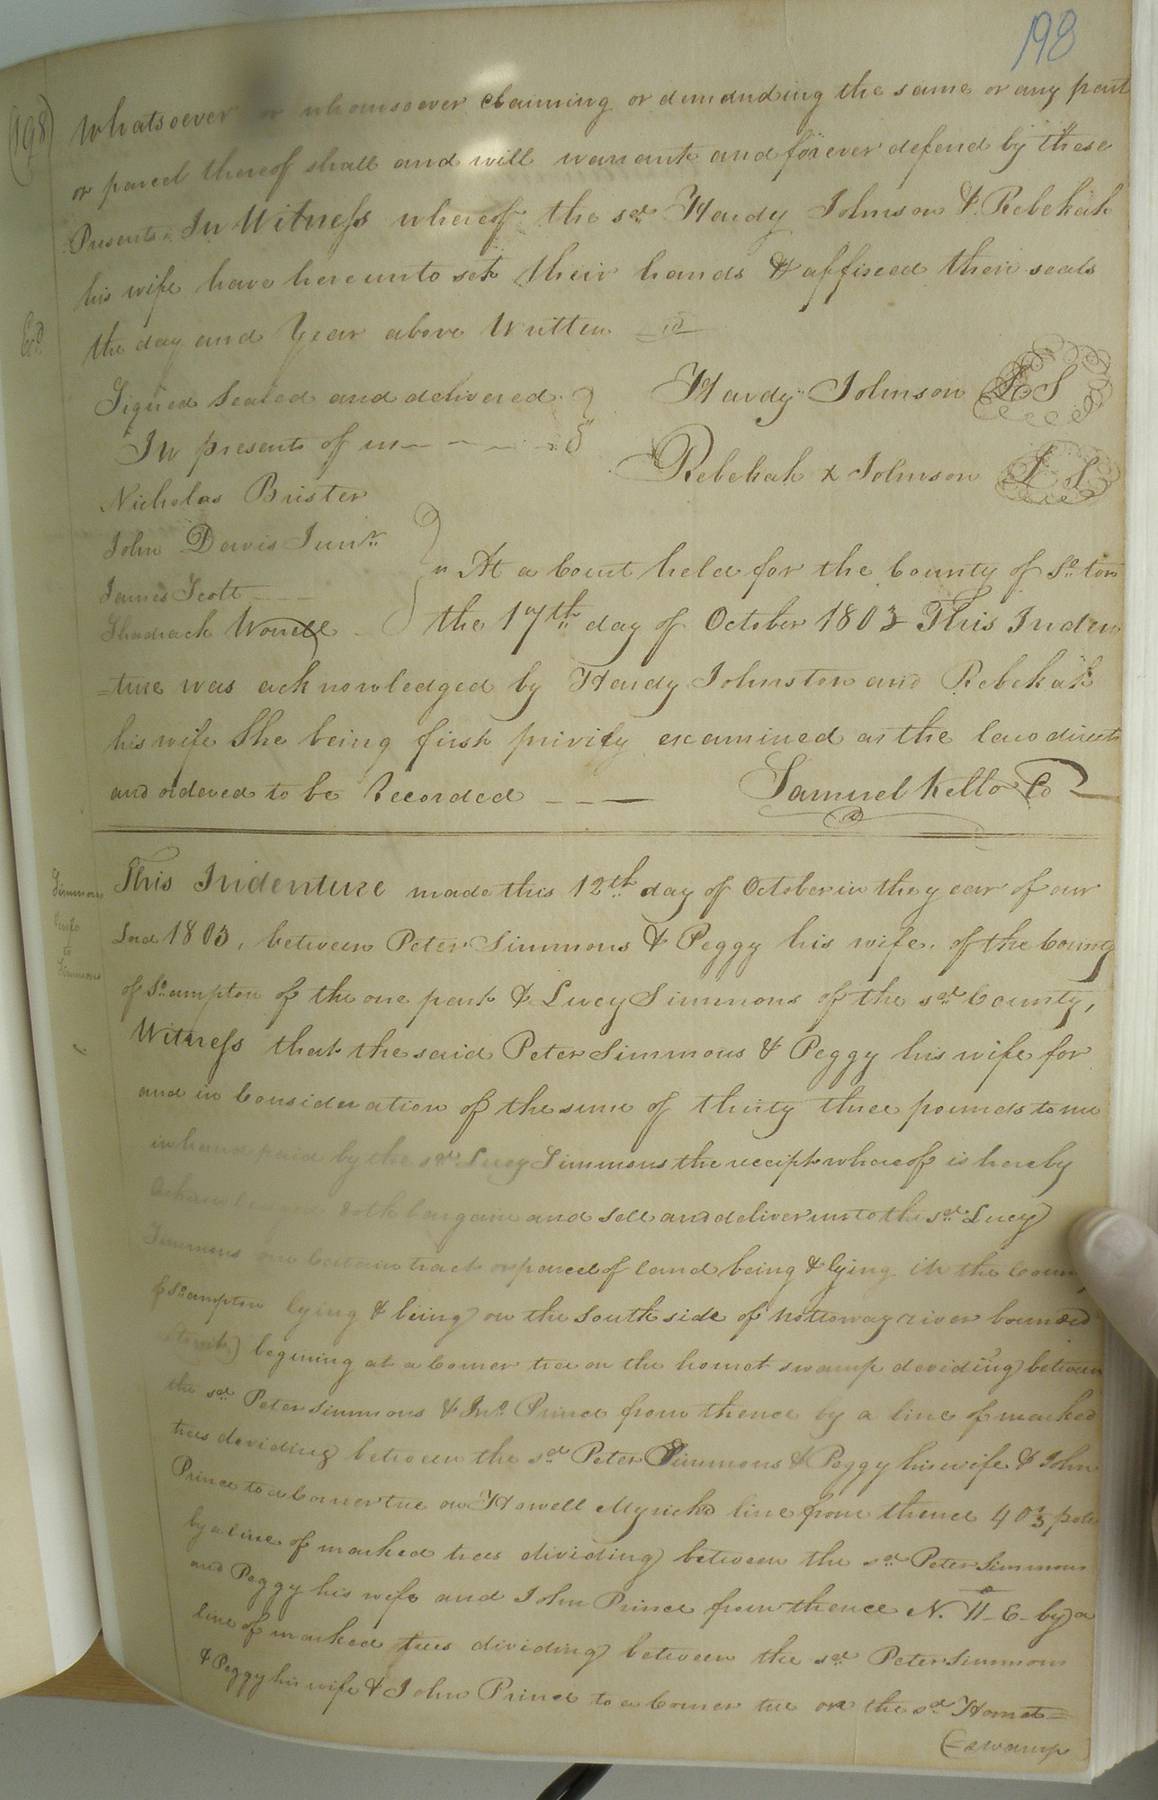 198
(198)
Whatsoever or whomsoever claiming or demanding the same or any part
or parcel thereof shall and will warrant and forever defend by these
Presents. In Witness whereof the sd. Hardy Johnson & Rebekah
his wife have hereunto set their hands & affixed their seals
the day and Year above Written
Exd.
Signed Sealed and delivered
In presents of us
Hardy Johnson L S
Rebekah x Johnson L S
Nicholas Brister
John Davis Junr.
James Scott
Shadrack Worrell
At a Court held for the County of So. ton
the 17th day of October 1803 This Inden
=ture was acknowledged by Hardy Johnston and Rebekah
his wife She being first privily examined as the law directs
and ordered to be Recorded
Samuel Kello Co
Simmons
wife
to
Simmons
This Indenture made this 12th day of October in the year of our
Lord 1803, between Peter Simmons & Peggy his wife, of the County
of So.ampton of the one part & Lucy Simmons of the sd. County,
Witness that the said Peter Simmons & Peggy his wife for
and in Consideration of the sum of thirty three pounds to me
in hand paid by the sd. Lucy Simmons the receipt whereof is hereby
doth bargain and sell and deliver unto the sd. Lucy
Simmons one Certain tract or parcel of land being & lying in the County
of So.ampton lying & being on the South side of nottoway river bounded
begining at a Corner tree on the hornet swamp deviding between
the sd. Peter Simmons & Jno. Prince from thence by a line of marked
trees deviding between the sd. Peter Simmons & Peggy his wife & John
Prince to a Corner tree on Howell Myrick's line from thence 403 poles
by a line of marked trees dividing between the sd. Peter Simmons
and Peggy his wife and John Prince from thence N. 11 E- by a
line of marked trees dividing between the sd. Peter Simmons
& Peggy his wife & John Prince to a Corner tree on the sd. Hornet=
(=swamp